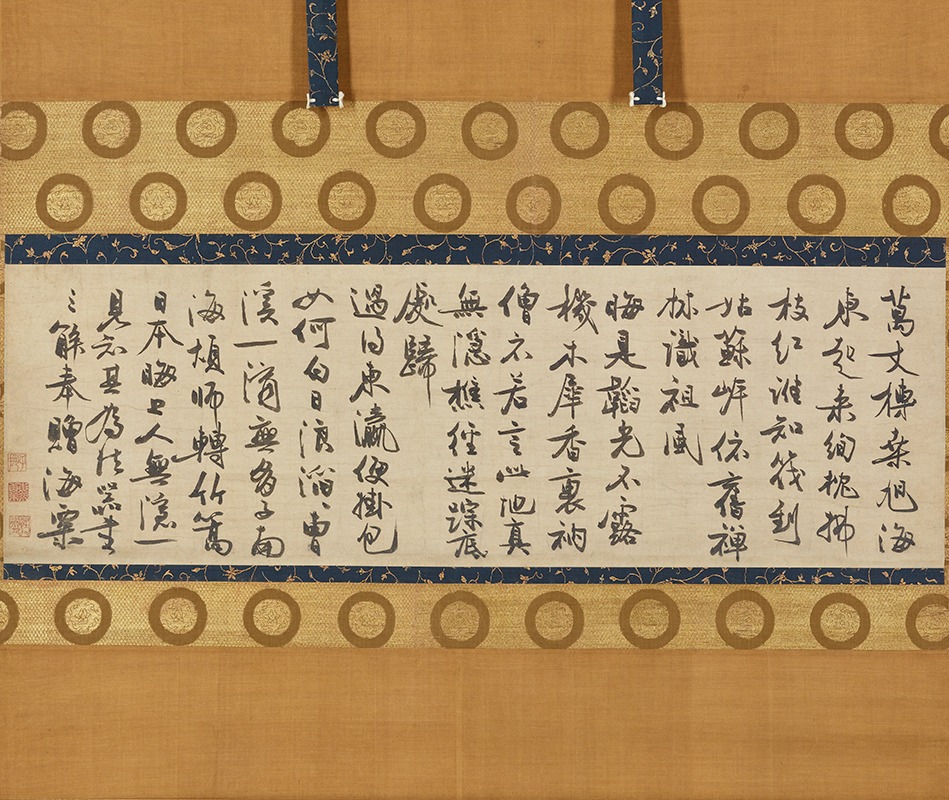 萬丈槫桒旭海
東起來絢桅拂
枝紅誰知筏到
姑蘇岸依舊禪
林識祖風
晦是韜光不露
機木犀香裏衲
僧衣若言此地真
無隱樵徑迷踪底
處歸
過得東瀛便掛包
如何白日浪滔〻曹
溪一滴無多子南
海煩師轉竹篙
日本晦上人無隱一
見知其為法器書
三解奉贈海粟